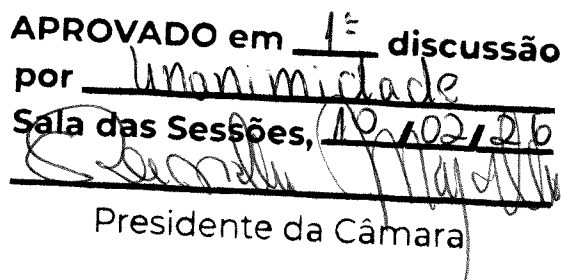 APROVADO em 1ª discussão
por Unanimidade
Sala das Sessões, 10/02/26
Presidente da Câmara